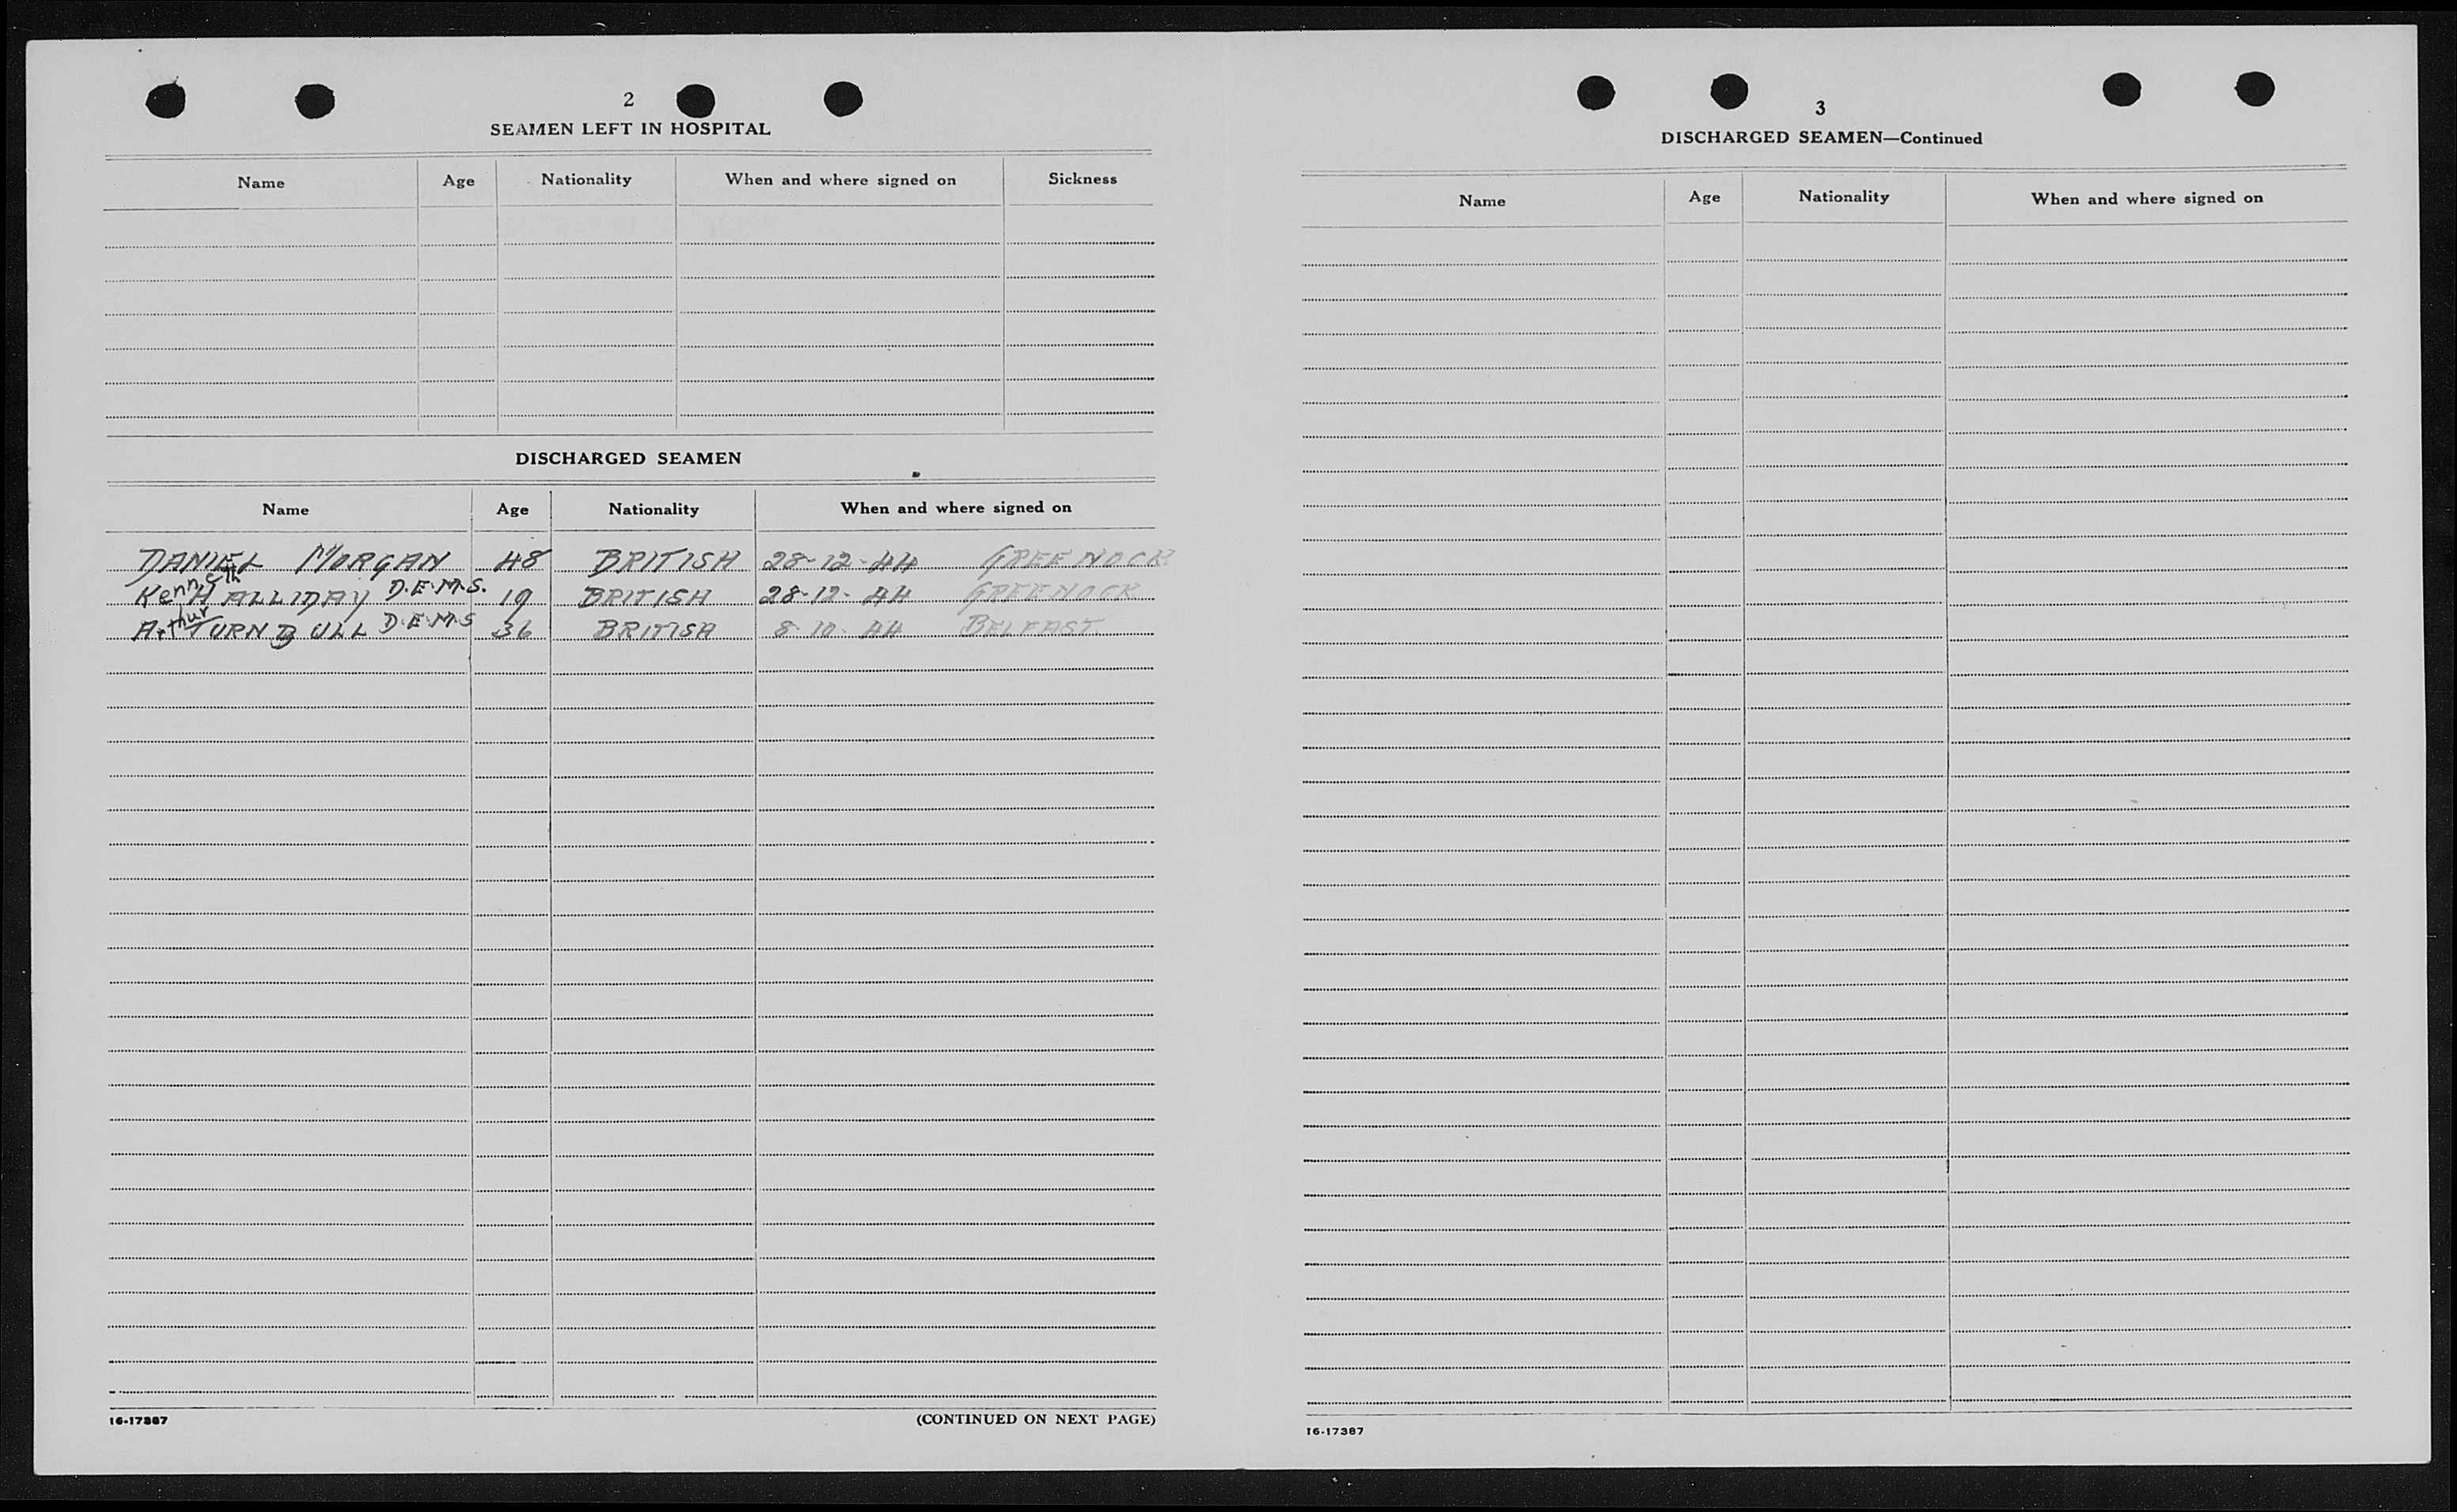 2
SEAMEN LEFT IN HOSPITAL
Name Age Nationality When and where signed on Sickness
DISCHARGED SEAMEN
Name Age Nationality When and where signed on
DANIEL MORGAN 48 BRITISH 28-12-44 GREENOCK
Kenneth HALLIDAY D.E.M.S. 19 BRITISH 28-12-44 GREENOCK
Arthur TURNBULL D.E.M.S 36 BRITISH 8-10-44 BELFAST
16-17387
(CONTINUED ON NEXT PAGE)
3
DISCHARGED SEAMEN—Continued
Name Age Nationality When and where signed on
16-17387